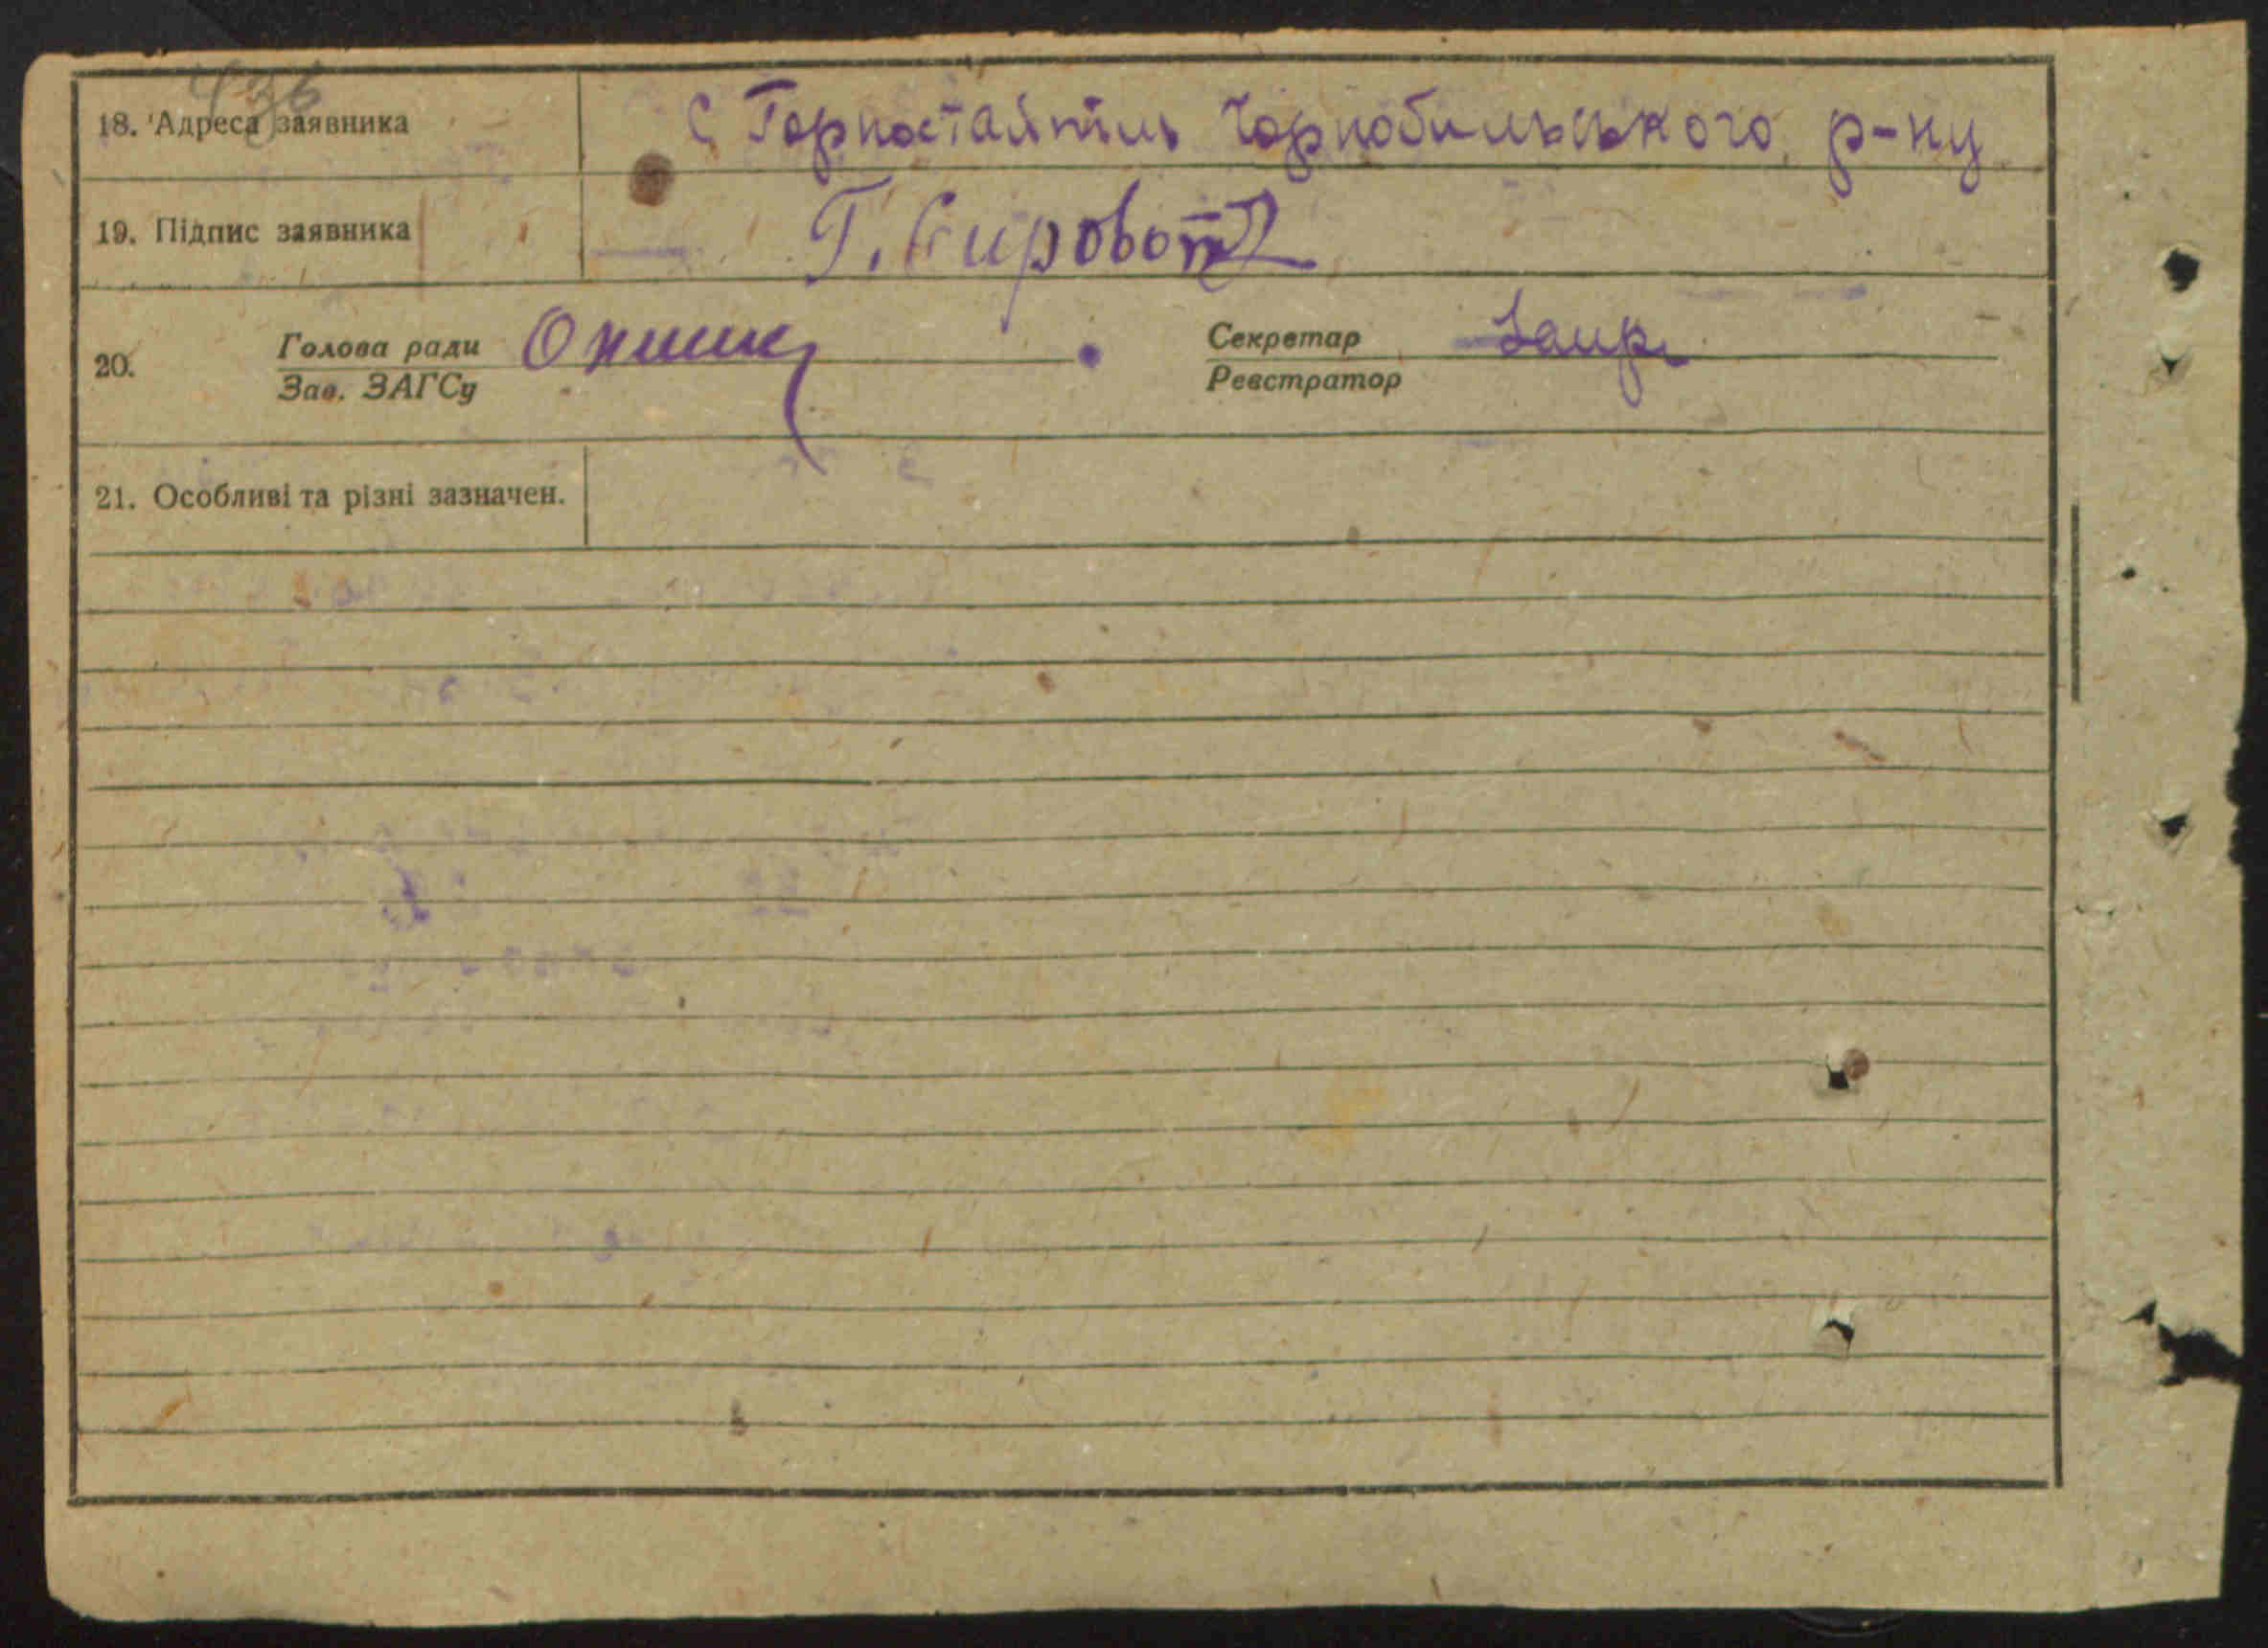 436
18. Адреса заявника С Горностайпіль Чорнобильського р-ну
19. Підпис заявника Г. Сировот
20. Голова ради Секретар
Зав. ЗАГСу Реєстратор
21. Особливі та різні зазначен.